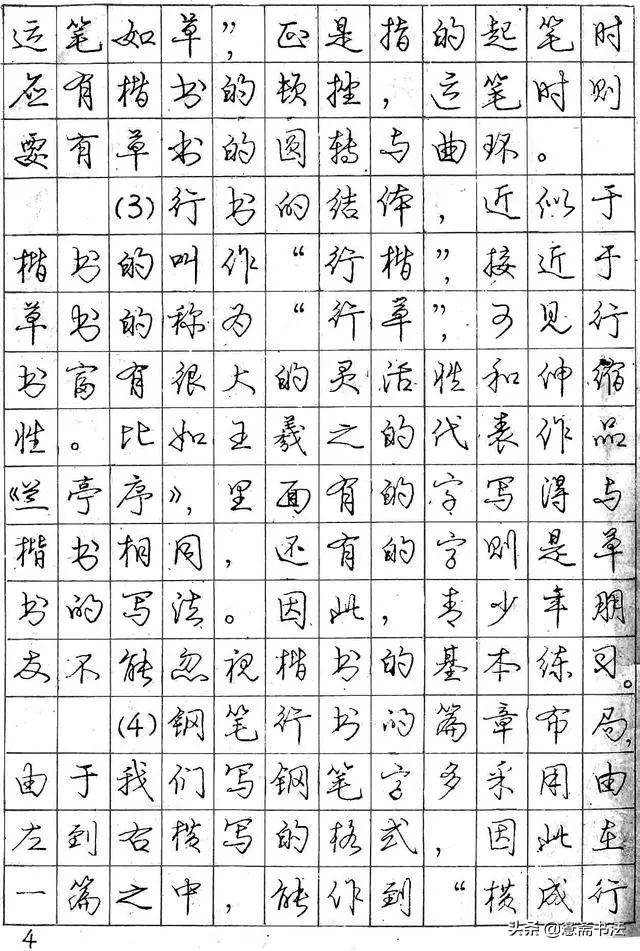 运笔如草”,正是指的起笔时
应有楷书的顿挫,运笔时则
要有草书的圆转与曲环。
(3)行书的结体,近似于
楷书的叫作“行楷”,接近于
草书的称为“行草”,可见行
书富有很大的灵活性和伸缩
性。比如王羲之的代表作品
《兰亭序》,里面有的字写得与
楷书相同,还有的字则是草
书的写法。因此,青少年朋
友不能忽视楷书的基本练习。
(4)钢笔行书的篇章布局,
由于我们写钢笔字多采用由
左到右横写的格式,因此在
一篇之中,能作到“横成行
4
头条@慧斋书法